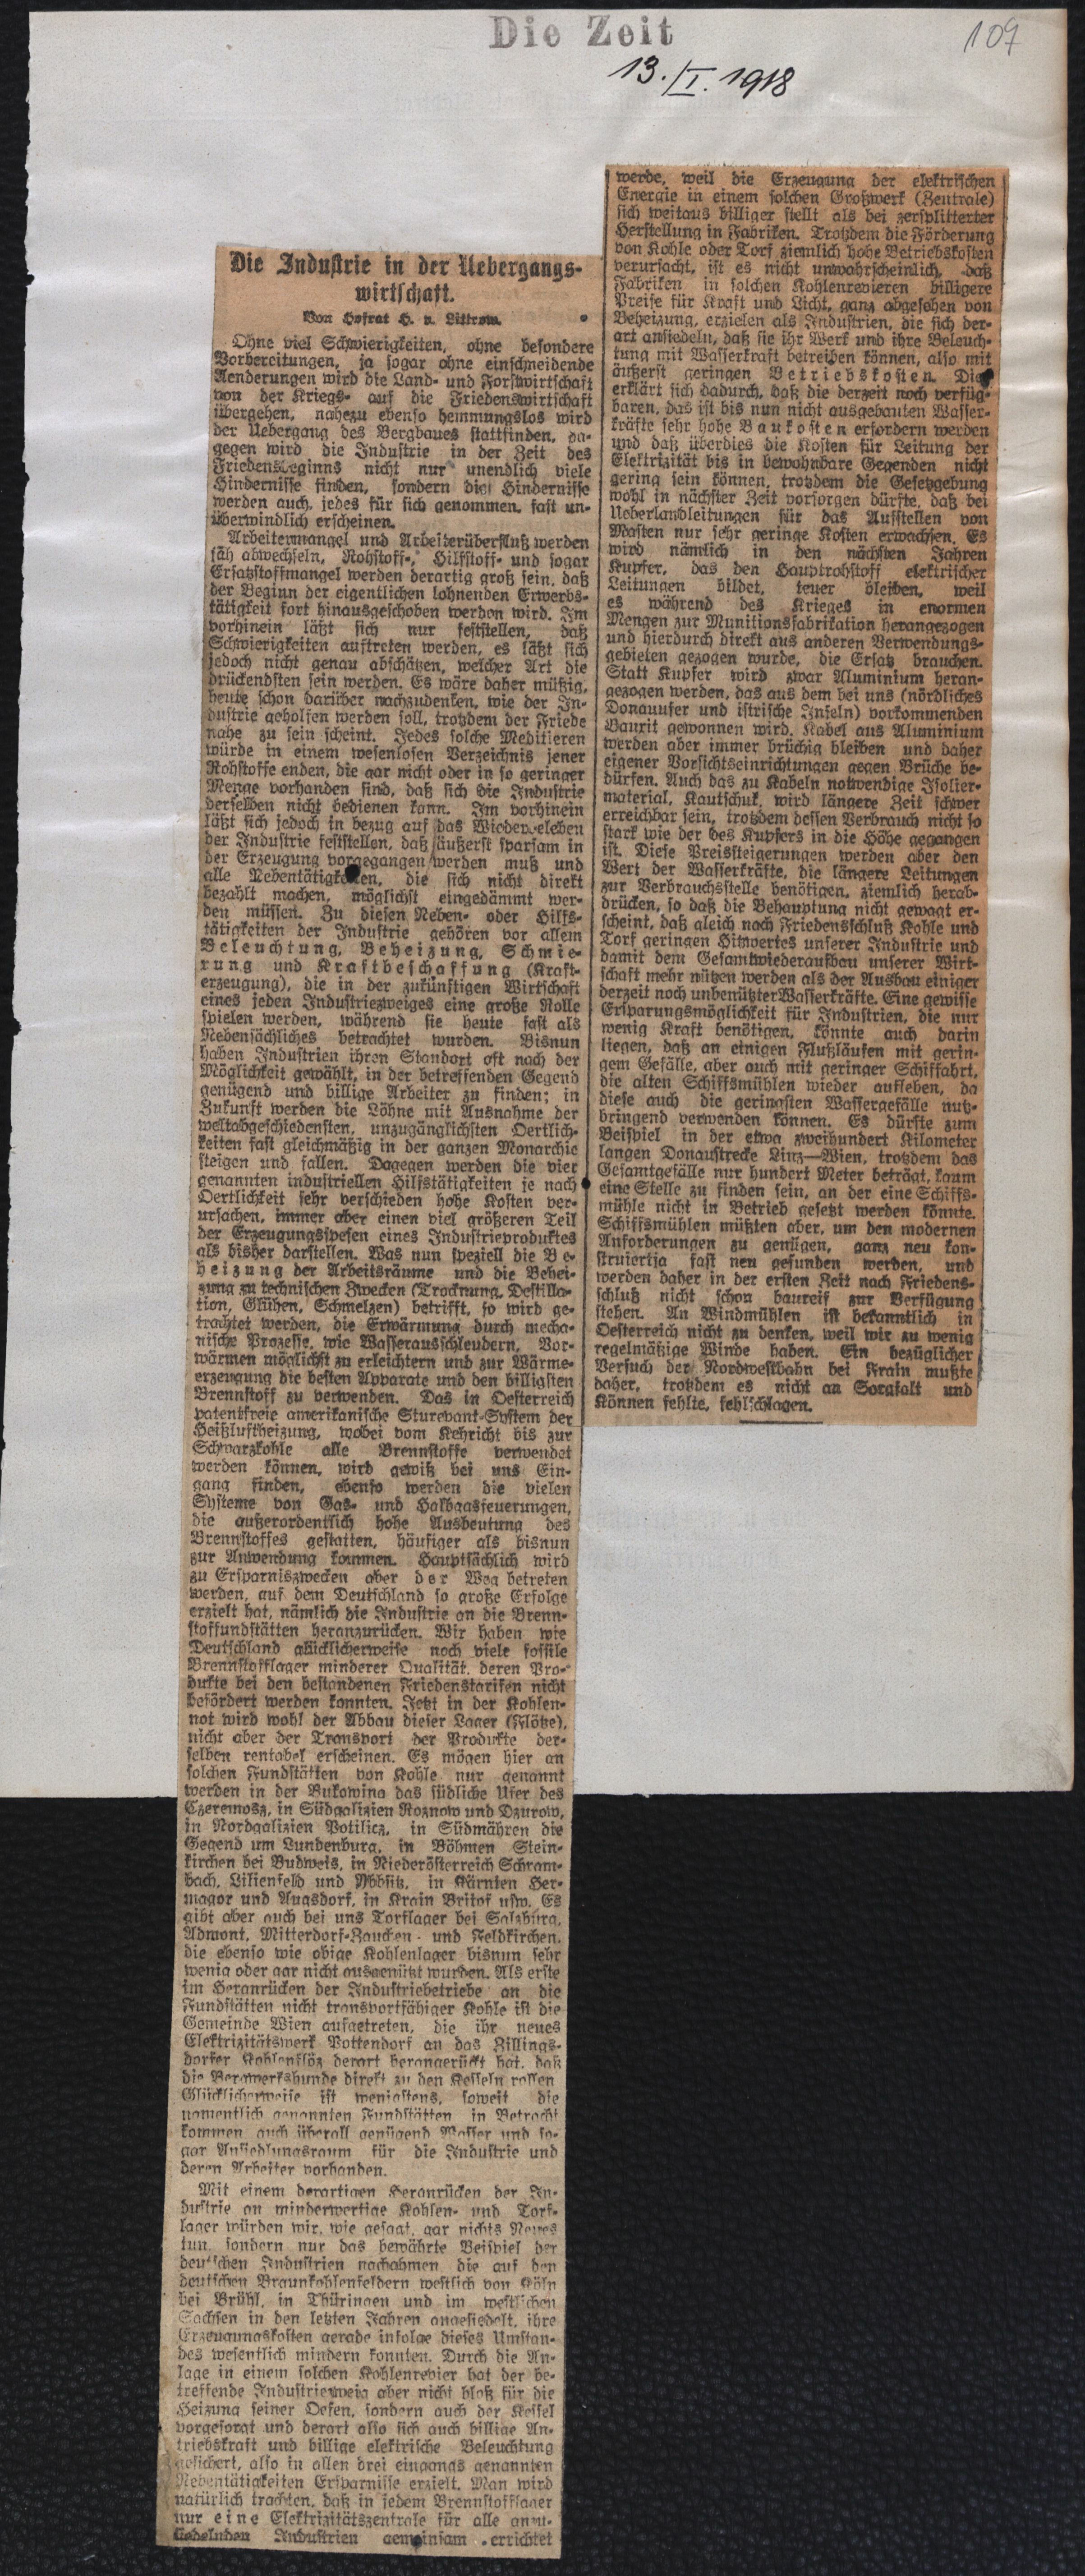 Die Zeit
109
13./I. 1918
Die Industrie in der Uebergangs-
wirtschaft.
Von Hofrat H. v. Littrow.
Ohne viel Schwierigkeiten, ohne besondere
Vorbereitungen, ja sogar ohne einschneidende
Aenderungen wird die Land- und Forstwirtschaft
von der Kriegs- auf die Friedenswirtschaft
übergehen, nahezu ebenso hemmungslos wird
der Uebergang des Bergbaues stattfinden, da-
gegen wird die Industrie in der Zeit des
Friedensbeginns nicht nur unendlich viele
Hindernisse finden, sondern die Hindernisse
werden auch, jedes für sich genommen, fast un-
überwindlich erscheinen.
Arbeitermangel und Arbeiterüberfluß werden
jäh abwechseln, Rohstoff-, Hilfsstoff- und sogar
Ersatzstoffmangel werden derartig groß sein, daß
der Beginn der eigentlichen lohnenden Erwerbs-
tätigkeit fort hinausgeschoben werden wird. Im
vorhinein läßt sich nur feststellen, daß
Schwierigkeiten auftreten werden, es läßt sich
jedoch nicht genau abschätzen, welcher Art die
drückendsten sein werden. Es wäre daher müßig,
heute schon darüber nachzudenken, wie der In-
dustrie geholfen werden soll, trotzdem der Friede
nahe zu sein scheint. Jedes solche Meditieren
würde in einem wesenlosen Verzeichnis jener
Rohstoffe enden, die gar nicht oder in so geringer
Menge vorhanden sind, daß sich die Industrie
derselben nicht bedienen kann. Im vorhinein
läßt sich jedoch in bezug auf das Wiederbeleben
der Industrie feststellen, daß äußerst sparsam in
der Erzeugung vorgegangen werden muß und
alle Nebentätigkeiten, die sich nicht direkt
bezahlt machen, möglichst eingedämmt wer-
den müssen. Zu diesen Neben- oder Hilfs-
tätigkeiten der Industrie gehören vor allem
Beleuchtung, Beheizung, Schmie-
rung und Kraftbeschaffung (Kraft-
erzeugung), die in der zukünftigen Wirtschaft
eines jeden Industriezweiges eine große Rolle
spielen werden, während sie heute fast als
Nebensächliches betrachtet wurden. Bisnun
haben Industrien ihren Standort oft nach der
Möglichkeit gewählt, in der betreffenden Gegend
genügend und billige Arbeiter zu finden; in
Zukunft werden die Löhne mit Ausnahme der
weltabgeschiedensten, unzugänglichsten Oertlich-
keiten fast gleichmäßig in der ganzen Monarchie
steigen und fallen. Dagegen werden die vier
genannten industriellen Hilfstätigkeiten je nach
Oertlichkeit sehr verschieden hohe Kosten ver-
ursachen, immer aber einen viel größeren Teil
der Erzeugungsspesen eines Industrieproduktes
als bisher darstellen. Was nun speziell die Be-
heizung der Arbeitsräume und die Behei-
zung zu technischen Zwecken (Trocknung, Destilla-
tion, Glühen, Schmelzen) betrifft, so wird ge-
trachtet werden, die Erwärmung durch mecha-
nische Prozesse, wie Wasserausschleudern, Vor-
wärmen möglichst zu erleichtern und zur Wärme-
erzeugung die besten Apparate und den billigsten
Brennstoff zu verwenden. Das in Oesterreich
patentfreie amerikanische Sturevant-System der
Heißluftheizung, wobei vom Kehricht bis zur
Schwarzkohle alle Brennstoffe verwendet
werden können, wird gewiß bei uns Ein-
gang finden, ebenso werden die vielen
Systeme von Gas- und Halbgasfeuerungen,
die außerordentlich hohe Ausbeutung des
Brennstoffes gestatten, häufiger als bisnun
zur Anwendung kommen. Hauptsächlich wird
zu Ersparniszwecken aber der Weg betreten
werden, auf dem Deutschland so große Erfolge
erzielt hat, nämlich die Industrie an die Brenn-
stoffundstätten heranzurücken. Wir haben wie
Deutschland glücklicherweise noch viele fossile
Brennstofflager minderer Qualität, deren Pro-
dukte bei den bestandenen Friedenstarifen nicht
befördert werden konnten. Jetzt in der Kohlen-
not wird wohl der Abbau dieser Lager (Flötze),
nicht aber der Transport der Produkte der-
selben rentabel erscheinen. Es mögen hier an
solchen Fundstätten von Kohle nur genannt
werden in der Bukowina das südliche Ufer des
Czeremosz, in Südgalizien Roznow und Dzurow,
in Nordgalizien Potilicz, in Südmähren die
Gegend um Lundenburg, in Böhmen Stein-
kirchen bei Budweis, in Niederösterreich Schram-
bach, Lilienfeld und Ybbsitz, in Kärnten Her-
magor und Augsdorf, in Krain Britof usw. Es
gibt aber auch bei uns Torflager bei Salzburg,
Admont, Mitterdorf-Zauchen- und Feldkirchen,
die ebenso wie obige Kohlenlager bisnun sehr
wenig oder gar nicht ausgenützt wurden. Als erste
im Heranrücken der Industriebetriebe an die
Fundstätten nicht transportfähiger Kohle ist die
Gemeinde Wien aufgetreten, die ihr neues
Elektrizitätswerk Pottendorf an das Zillings-
dorfer Kohlenflöz derart herangerückt hat, daß
die Bergwerkshunde direkt zu den Kesseln rollen
Glücklicherweise ist wenigstens, soweit die
namentlich genannten Fundstätten in Betracht
kommen, auch überall genügend Wasser und so-
gar Ansiedlungsraum für die Industrie und
deren Arbeiter vorhanden.
Mit einem derartigen Heranrücken der In-
dustrie an minderwertige Kohlen- und Torf-
lager würden wir, wie gesagt, gar nichts Neues
tun, sondern nur das bewährte Beispiel der
deutschen Industrien nachahmen, die auf den
deutschen Braunkohlenfeldern westlich von Köln
bei Brühl, in Thüringen und im westlichen
Sachsen in den letzten Jahren angesiedelt, ihre
Erzeugungskosten gerade infolge dieses Umstan-
des wesentlich mindern konnten. Durch die An-
lage in einem solchen Kohlenrevier hat der be-
treffende Industriezweig aber nicht bloß für die
Heizung seiner Oefen, sondern auch der Kessel
vorgesorgt und derart also sich auch billige An-
triebskraft und billige elektrische Beleuchtung
gesichert, also in allen drei eingangs genannten
Nebentätigkeiten Ersparnisse erzielt. Man wird
natürlich trachten, daß in jedem Brennstofflager
nur eine Elektrizitätszentrale für alle anzu-
siedelnden Industrien gemeinsam errichtet
werde, weil die Erzeugung der elektrischen
Energie in einem solchen Großwerk (Zentrale)
sich weitaus billiger stellt als bei zersplitterter
Herstellung in Fabriken. Trotzdem die Förderung
von Kohle oder Torf ziemlich hohe Betriebskosten
verursacht, ist es nicht unwahrscheinlich, daß
Fabriken in solchen Kohlenrevieren billigere
Preise für Kraft und Licht, ganz abgesehen von
Beheizung, erzielen als Industrien, die sich der-
art ansiedeln, daß sie ihr Werk und ihre Beleuch-
tung mit Wasserkraft betreiben können, also mit
äußerst geringen Betriebskosten. Dies
erklärt sich dadurch, daß die derzeit noch verfüg-
baren, das ist bis nun nicht ausgebauten Wasser-
kräfte sehr hohe Baukosten erfordern werden
und daß überdies die Kosten für Leitung der
Elektrizität bis in bewohnbare Gegenden nicht
gering sein können, trotzdem die Gesetzgebung
wohl in nächster Zeit vorsorgen dürfte, daß bei
Ueberlandleitungen für das Aufstellen von
Masten nur sehr geringe Kosten erwachsen. Es
wird nämlich in den nächsten Jahren
Kupfer, das den Hauptrohstoff elektrischer
Leitungen bildet, teuer bleiben, weil
es während des Krieges in enormen
Mengen zur Munitionsfabrikation herangezogen
und hierdurch direkt aus anderen Verwendungs-
gebieten gezogen wurde, die Ersatz brauchen.
Statt Kupfer wird zwar Aluminium heran-
gezogen werden, das aus dem bei uns (nördliches
Donauufer und istrische Inseln) vorkommenden
Bauxit gewonnen wird. Kabel aus Aluminium
werden aber immer brüchig bleiben und daher
eigener Vorsichtseinrichtungen gegen Brüche be-
dürfen. Auch das zu Kabeln notwendige Isolier-
material, Kautschuk, wird längere Zeit schwer
erreichbar sein, trotzdem dessen Verbrauch nicht so
stark wie der des Kupfers in die Höhe gegangen
ist. Diese Preissteigerungen werden aber den
Wert der Wasserkräfte, die längere Leitungen
zur Verbrauchsstelle benötigen, ziemlich herab-
drücken, so daß die Behauptung nicht gewagt er-
scheint, daß gleich nach Friedensschluß Kohle und
Torf geringen Hitzwertes unserer Industrie und
damit dem Gesamtwiederaufbau unserer Wirt-
schaft mehr nützen werden als der Ausbau einiger
derzeit noch unbenützter Wasserkräfte. Eine gewisse
Ersparungsmöglichkeit für Industrien, die nur
wenig Kraft benötigen, könnte auch darin
liegen, daß an einigen Flußläufen mit gerin-
gem Gefälle, aber auch mit geringer Schiffahrt,
die alten Schiffsmühlen wieder aufleben, da
diese auch die geringsten Wassergefälle nutz-
bringend verwenden können. Es dürfte zum
Beispiel in der etwa zweihundert Kilometer
langen Donaustrecke Linz—Wien, trotzdem das
Gesamtgefälle nur hundert Meter beträgt, kaum
eine Stelle zu finden sein, an der eine Schiffs-
mühle nicht in Betrieb gesetzt werden könnte.
Schiffsmühlen müßten aber, um den modernen
Anforderungen zu genügen, ganz neu kon-
struiert, ja fast neu gefunden werden, und
werden daher in der ersten Zeit nach Friedens-
schluß nicht schon baureif zur Verfügung
stehen. An Windmühlen ist bekanntlich in
Oesterreich nicht zu denken, weil wir zu wenig
regelmäßige Winde haben. Ein bezüglicher
Versuch der Nordwestbahn bei Frain mußte
daher, trotzdem es nicht an Sorgfalt und
Können fehlte, fehlschlagen.